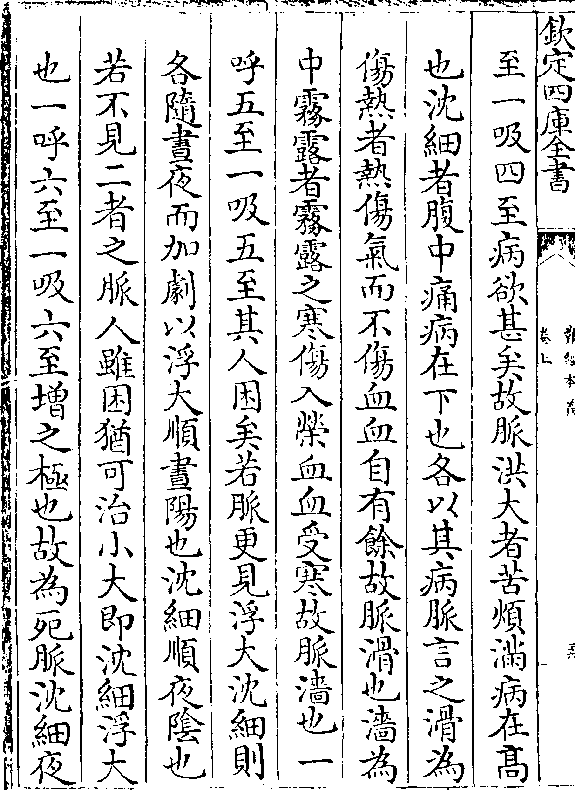 欽定四庫全書
卷上
至一吸四至病欲甚矣故脈洪大者苦煩滿病在高
也沈細者腹中痛病在下也各以其病脈言之滑為
傷熱者熱傷氣而不傷血血自有餘故脈滑也濇為
中霧露者霧露之寒傷入榮血血受寒故脈濇也一
呼五至一吸五至其人困矣若脈更見浮大沈細則
各隨晝夜而加劇以浮大順晝陽也沈細順夜陰也
若不見二者之脈人雖困猶可治小大即沈細浮大
也一呼六至一吸六至增之極也故為死脈沈細夜